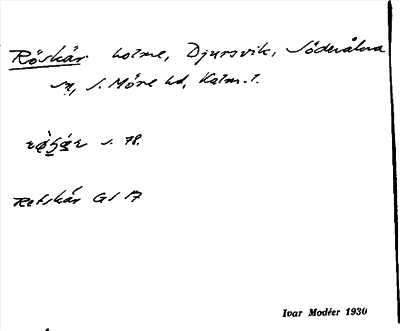 Röskär holme, Djursvik, Söderåkra
sn, S. Möre hd, Kalm. l.
s. 78.
Retskär GS 17
Ivar Modéer 1930